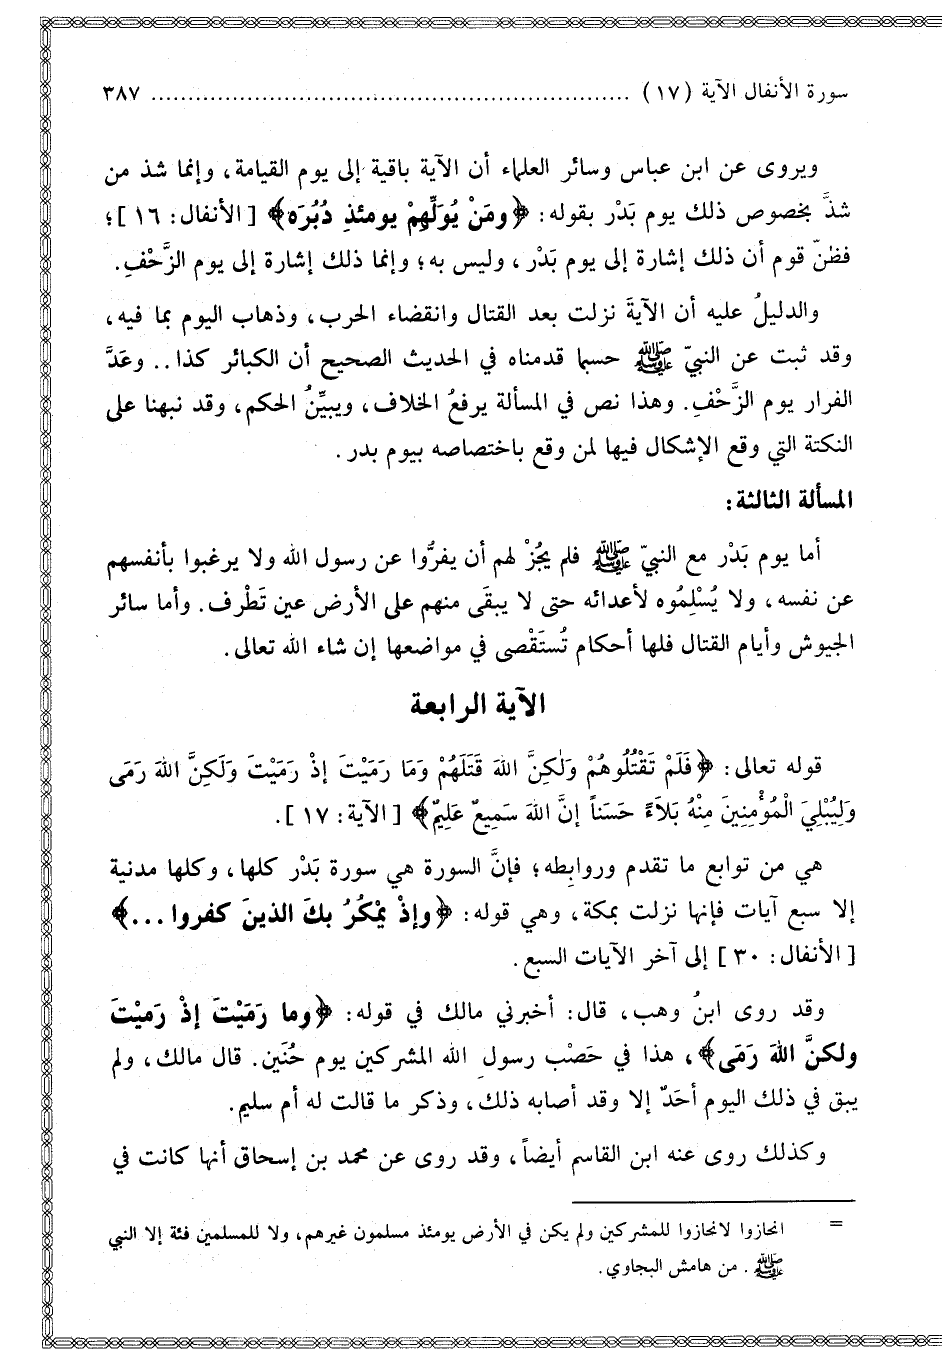 سورة الأنفال الآية (١٧) ................................................................ ٣٨٧
ويروى عن ابن عباس وسائر العلماء أن الآية باقية إلى يوم القيامة، وإنما شذ من
شذَّ بخصوص ذلك يوم بَدْر بقوله: ﴿ومَنْ يُوَلِّهِمْ يومئذِ دُبُرَه﴾ [الأنفال: ١٦]؛
فظنّ قوم أن ذلك إشارة إلى يوم بَدْر، وليس به؛ وإنما ذلك إشارة إلى يوم الزَّحْفِ.
والدليلُ عليه أن الآيةَ نزلت بعد القتال وانقضاء الحرب، وذهاب اليوم بما فيه،
وقد ثبت عن النبيّ ﷺ حسبما قدمناه في الحديث الصحيح أن الكبائر كذا.. وعَدَّ
الفرار يوم الزَّحْفِ. وهذا نص في المسألة يرفعُ الخلاف، ويبيِّنُ الحكم، وقد نبهنا على
النكتة التي وقع الإشكال فيها لمن وقع باختصاصه بيوم بدر.
المسألة الثالثة:
أما يوم بَدْر مع النبيّ ﷺ فلم يجُزْ لهم أن يفرُّوا عن رسول الله ولا يرغبوا بأنفسهم
عن نفسه، ولا يُسْلِمُوه لأعدائه حتى لا يبقَى منهم على الأرض عين تَطْرف. وأما سائر
الجيوش وأيام القتال فلها أحكام تُستَقْصى في مواضعها إن شاء الله تعالى.
الآية الرابعة
قوله تعالى: ﴿فَلَمْ تَقْتُلُوهُمْ وَلٰكِنَّ اللهَ قَتَلَهُمْ وَمَا رَمَيْتَ إذْ رَمَيْتَ وَلَكِنَّ اللهَ رَمَى
وَلِيُبْلِيَ الْمُؤْمِنِينَ مِنْهُ بَلاَءً حَسَناً إنَّ اللهَ سَمِيعٌ عَلِيمٌ﴾ [الآية: ١٧].
هي من توابع ما تقدم وروابِطه؛ فإنَّ السورة هي سورة بَدْر كلها، وكلها مدنية
إلا سبع آيات فإنها نزلت بمكة، وهي قوله: ﴿وإذْ يمْكُرُ بكَ الذينَ كفروا...﴾
[الأنفال: ٣٠] إلى آخر الآيات السبع.
وقد روى ابنُ وهب، قال: أخبرني مالك في قوله: ﴿وما رَمَيْتَ إذْ رَميْتَ
ولكنَّ اللهَ رَمَى﴾، هذا في حَصْب رسولِ الله المشركين يوم حُنَين. قال مالك، ولم
يبق في ذلك اليوم أحَدٌ إلا وقد أصابه ذلك، وذكر ما قالت له أم سليم.
وكذلك روى عنه ابن القاسم أيضاً، وقد روى عن محمد بن إسحاق أنها كانت في
= انحازوا لانحازوا للمشركين ولم يكن في الأرض يومئذ مسلمون غيرهم، ولا للمسلمين فئة إلا النبي
ﷺ. من هامش البجاوي.